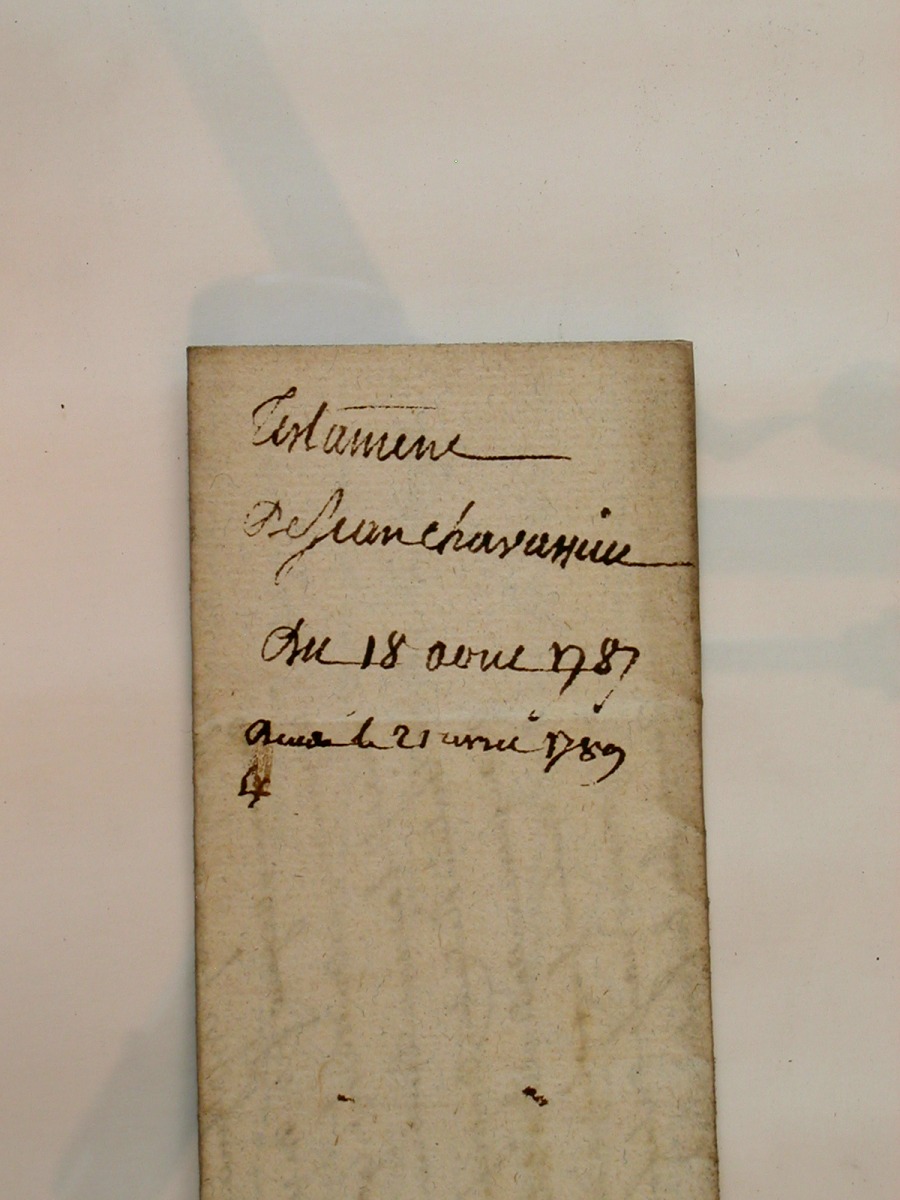 Testament
De Jean chavassieu
Du 18 aout 1787
le 21 avril 1789